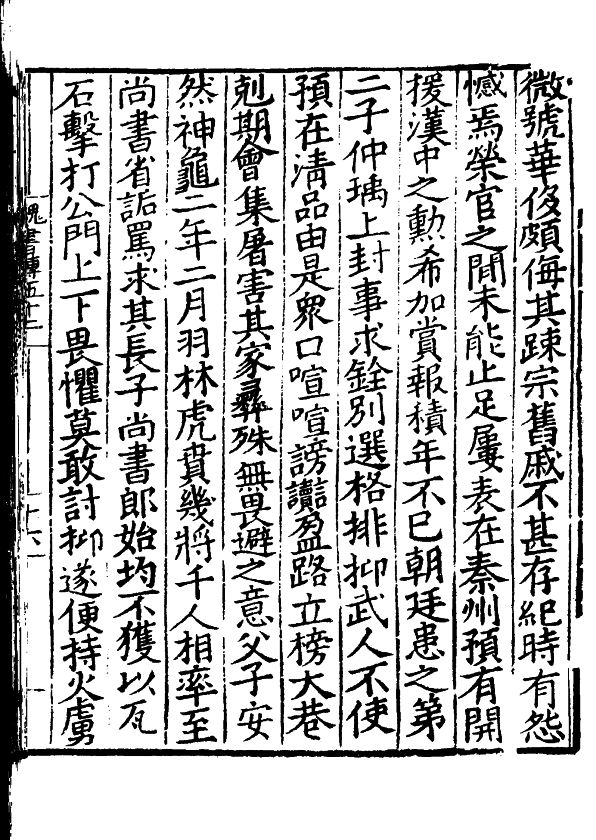 微號華侈頗侮其疎宗舊戚不甚存紀時有怨
憾焉榮官之間未能止足屢表在秦州預有開
援漢中之勲希加賞報積年不已朝廷患之第
二子仲瑀上封事求銓別選格排抑武人不使
預在清品由是衆口喧喧謗讟盈路立榜大巷
剋期會集屠害其家彞殊無畏避之意父子安
然神龜二年二月羽林虎賁幾將千人相率至
尚書省詬罵求其長子尚書郎始均不獲以瓦
石擊打公門上下畏懼莫敢討抑遂便持火虜
魏書傳五十二
十六